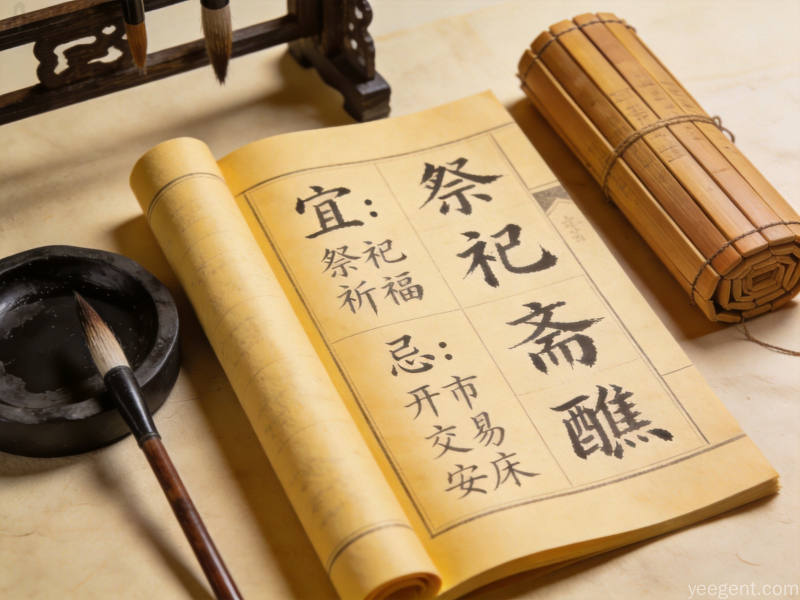 祭祀斋醮
宜：
祭祀
祈福
忌：
开市
交易
安床
yeegent.com